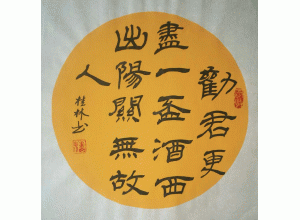 勸君更
盡一盃酒西
出陽關無故
人
桂林书